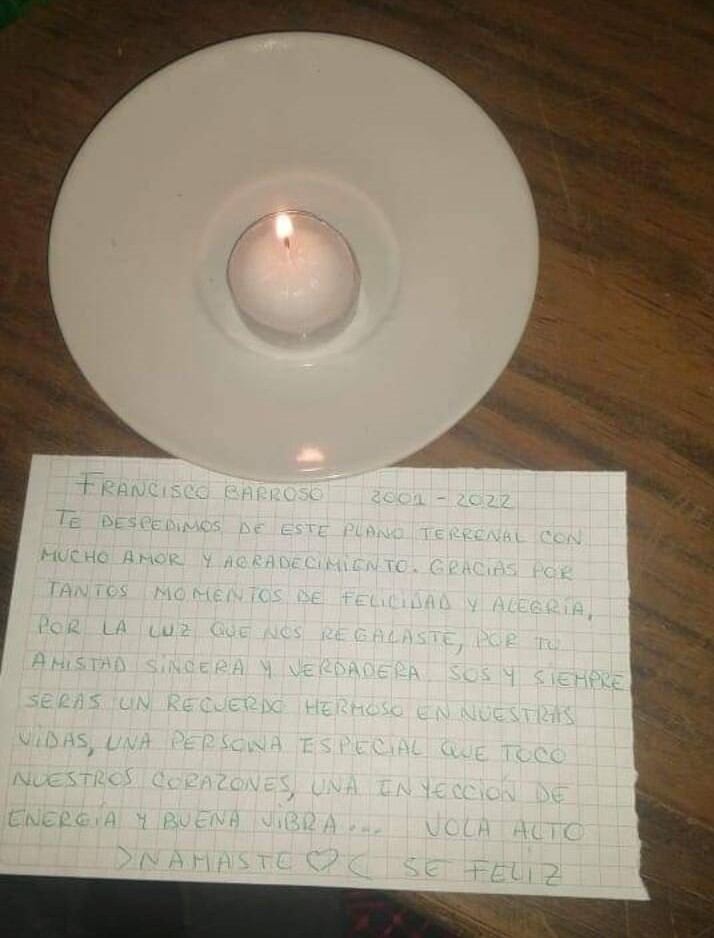 FRANCISCO BARROSO 2001 - 2022
TE DESPEDIMOS DE ESTE PLANO TERRENAL CON
MUCHO AMOR Y AGRADECIMIENTO. GRACIAS POR
TANTOS MOMENTOS DE FELICIDAD Y ALEGRÍA,
POR LA LUZ QUE NOS REGALASTE, POR TU
AMISTAD SINCERA Y VERDADERA. SOS Y SIEMPRE
SERAS UN RECUERDO HERMOSO EN NUESTRAS
VIDAS, UNA PERSONA ESPECIAL QUE TOCO
NUESTROS CORAZONES, UNA INYECCIÓN DE
ENERGÍA Y BUENA VIBRA... VOLA ALTO
>NAMASTE♡< SE FELIZ